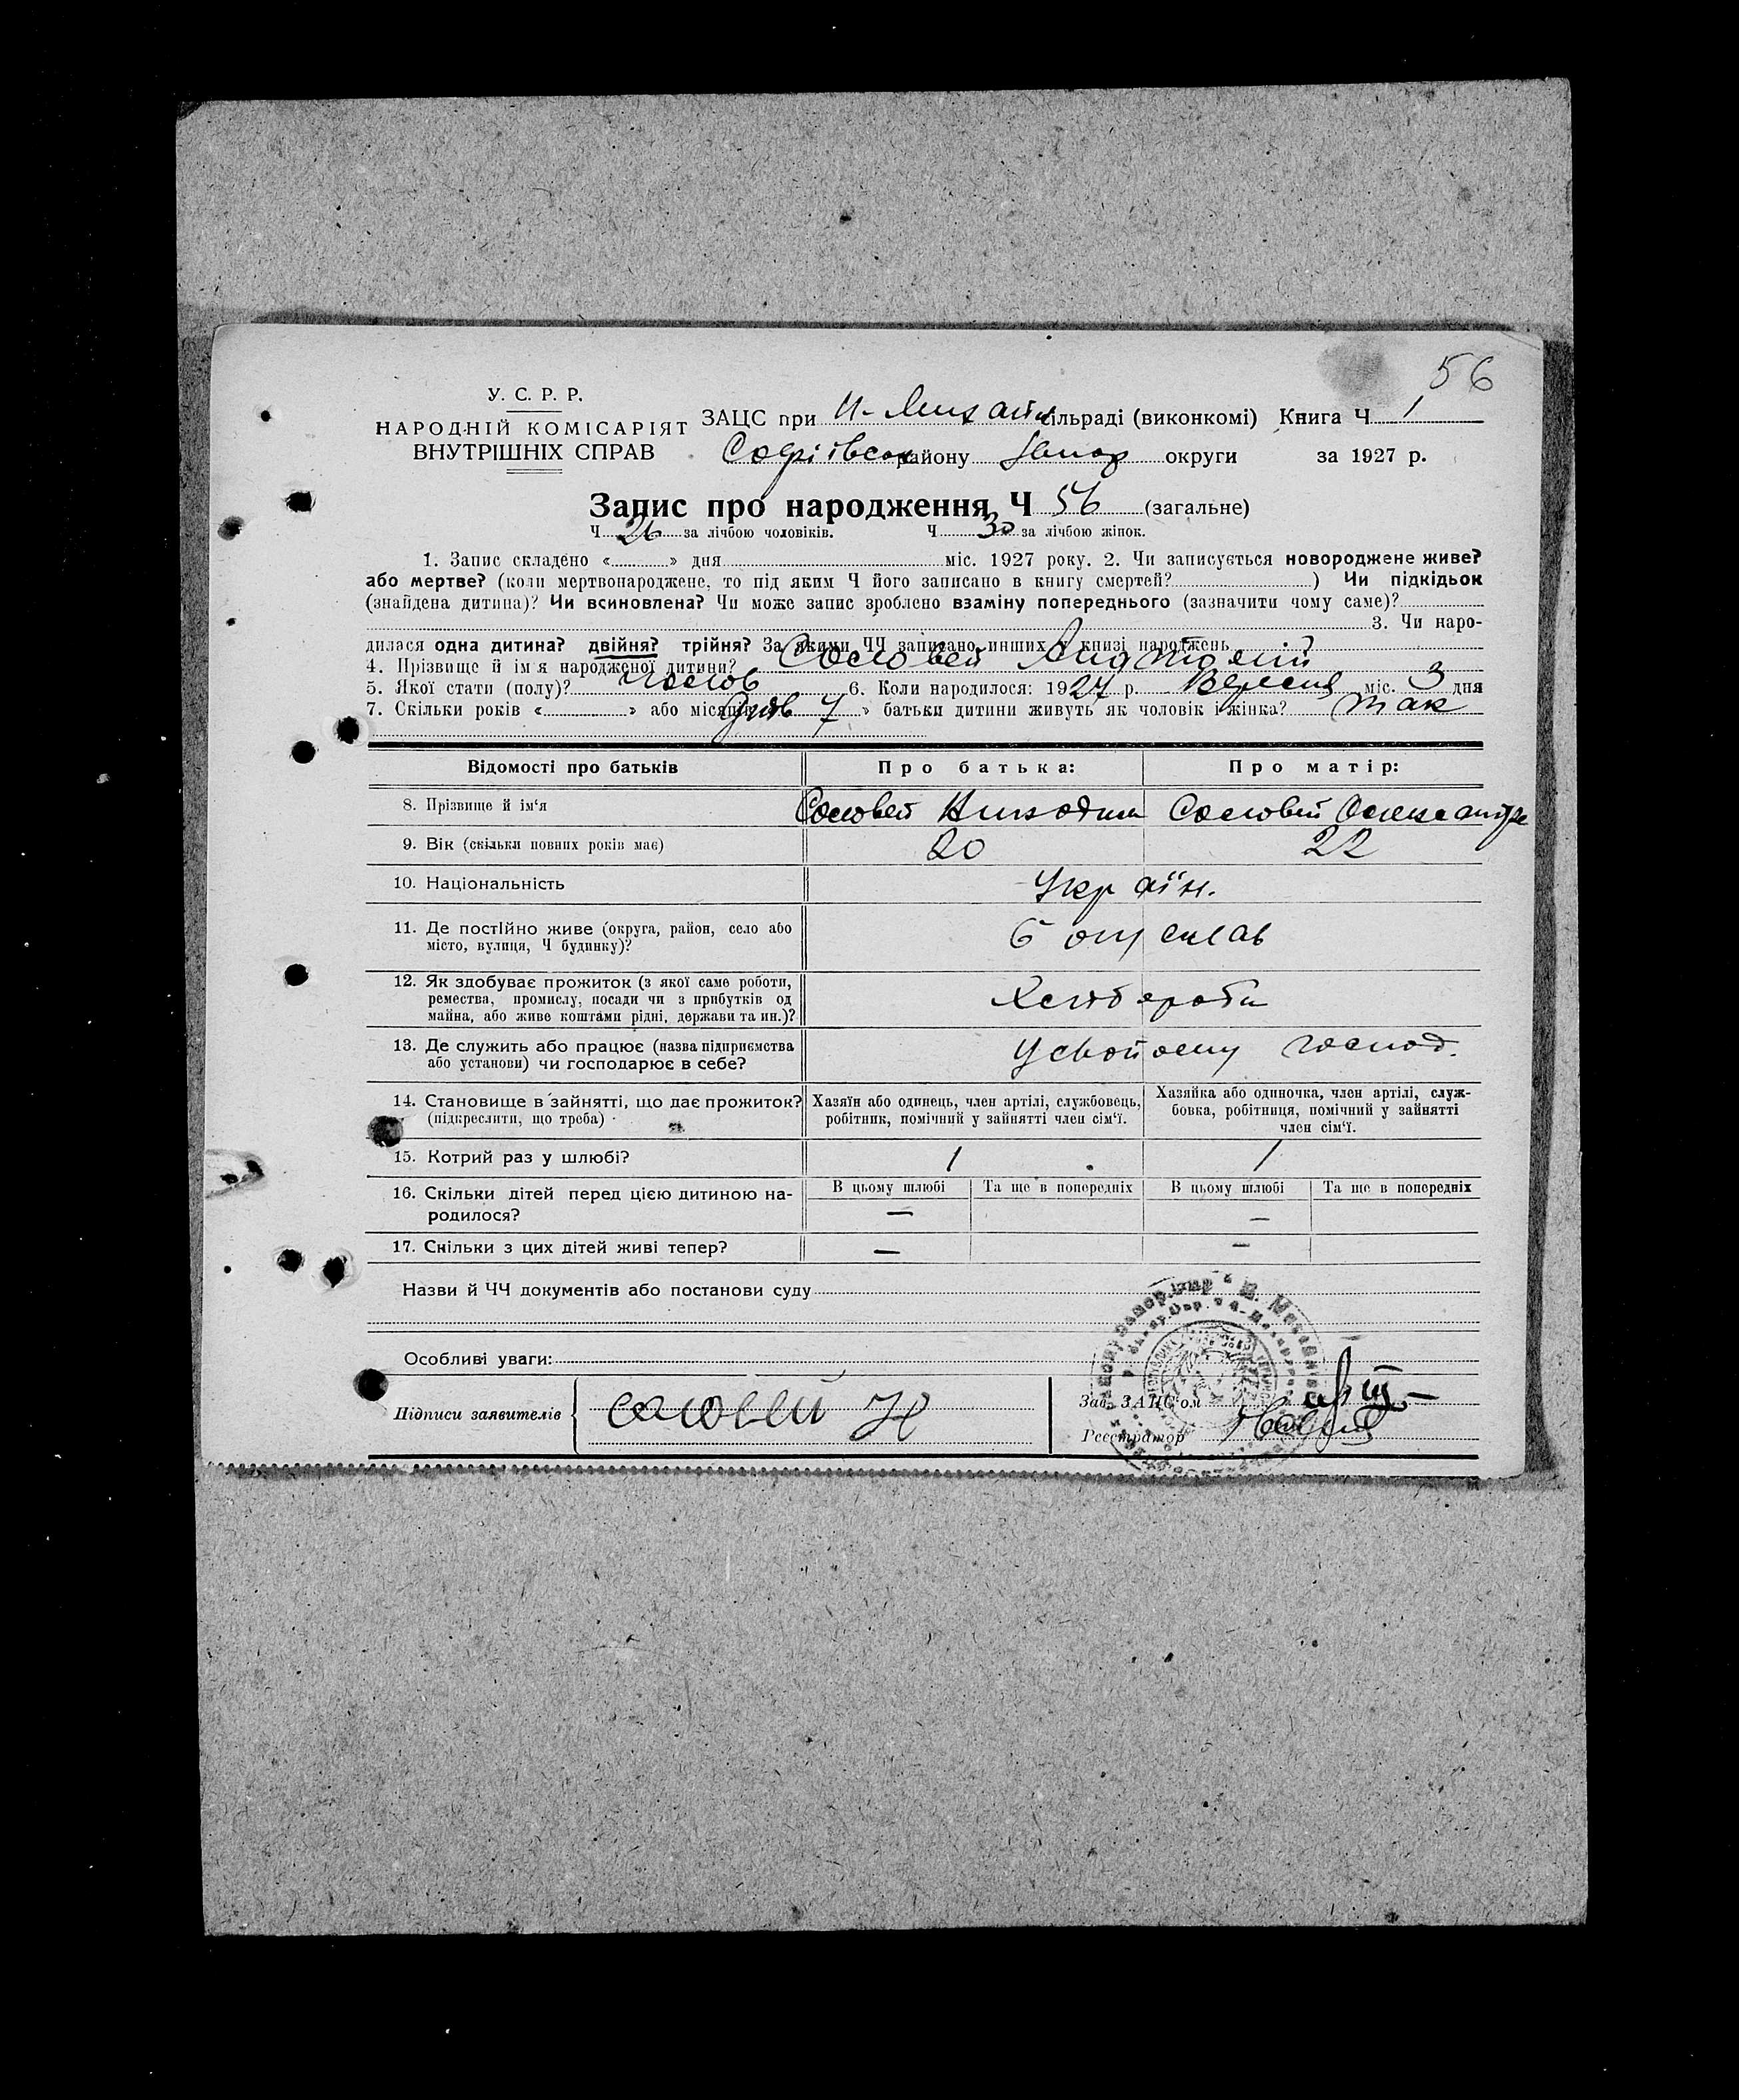 56
У. С. Р. Р.
НАРОДНІЙ КОМІСАРІЯТ
ВНУТРІШНІХ СПРАВ
ЗАЦС при сільраді (виконкомі) Книга Ч 1
Софіївськ району округи за 1927 р.
Запис про народження Ч 56 (загальне)
Ч 26 за лічбою чоловіків. Ч 30 за лічбою жінок.
1. Запис складено « » дня міс. 1927 року. 2. Чи записується новороджене живе?
або мертве? (коли мертвонароджене, то під яким Ч його записано в книгу смертей? ) Чи підкідьок
(знайдена дитина)? Чи всиновлена? Чи може запис зроблено взаміну попереднього (зазначити чому саме)?
3. Чи наро-
дилася одна дитина? двійня? трійня? За якими ЧЧ записано инших у книзі народжень ?
4. Прізвище й ім'я народженої дитини? Соловей Анатолій
5. Якої стати (полу)? чолов 6. Коли народилося: 1927 р. Вересня міс. 3 дня
7. Скільки років « » або місяців 7 » батьки дитини живуть як чоловік і жінка? так
Відомості про батьків Про батька: Про матір:
8. Прізвище й ім'я Соловей Никодим Соловей Олександра
9. Вік (скільки повних років має) 20 22
10. Національність Україн.
11. Де постійно живе (округа, район, село або
місто, вулиця, Ч будинку)?
12. Як здобуває прожиток (з якої саме роботи,
ремества, промислу, посади чи з прибутків од
майна, або живе коштами рідні, держави та ин.)?
Хлібороби
13. Де служить або працює (назва підприємства
або установи) чи господарює в себе?
У свойому господ.
14. Становище в зайнятті, що дає прожиток?
(підкреслити, що треба)
Хазяїн або одинець, член артілі, службовець,
робітник, помічний у зайнятті член сім'ї.
Хазяйка або одиночка, член артілі, служ-
бовка, робітниця, помічний у зайнятті
член сім'ї.
15. Котрий раз у шлюбі? 1 1
16. Скільки дітей перед цією дитиною на-
родилося?
В цьому шлюбі Та ще в попередніх В цьому шлюбі Та ще в попередніх
— —
17. Скільки з цих дітей живі тепер? — —
Назви й ЧЧ документів або постанови суду
Особливі уваги:
Підписи заявителів Соловей Н
Зав. ЗАЦС'ом
Реєстратор